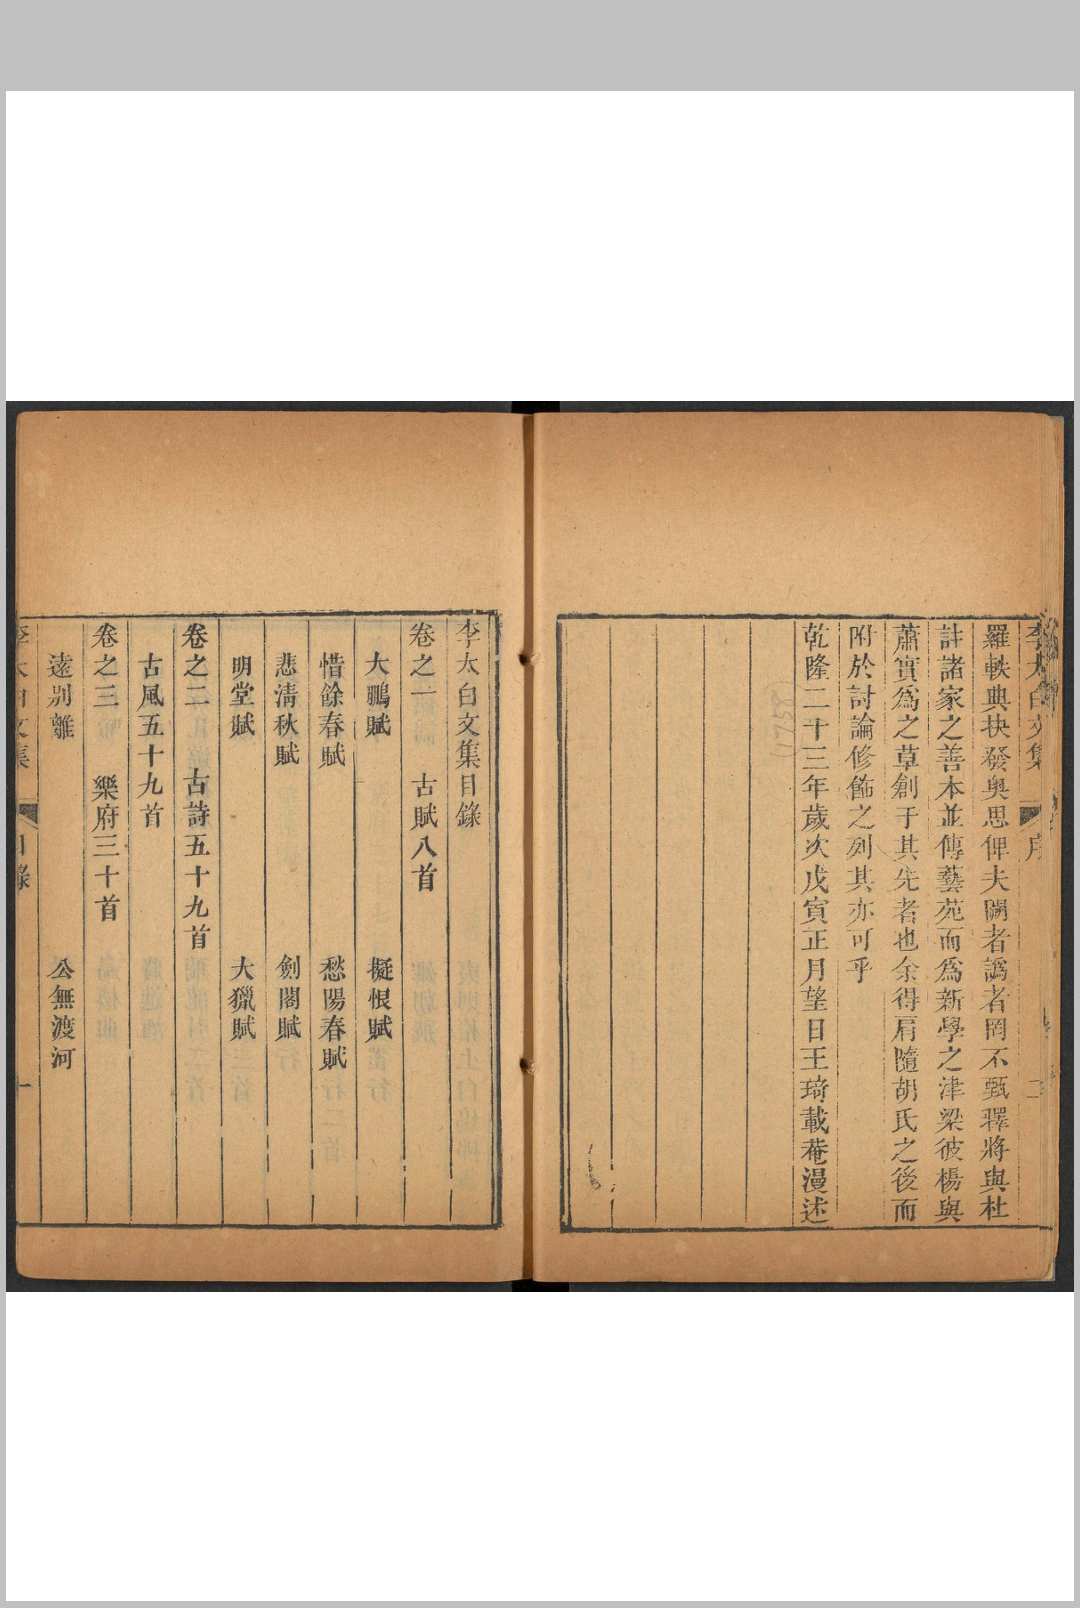 李太白文集
序
二
羅軼典抉發奥思俾夫闕者譌者罔不甄釋將與杜
註諸家之善本並傳藝苑而爲新學之津梁彼楊與
蕭實爲之草創于其先者也余得肩隨胡氏之後而
附於討論修飾之列其亦可乎
乾隆二十三年歲次戊寅正月望日王琦載菴漫述
李太白文集目錄
卷之一　古賦八首
大鵬賦　擬恨賦
惜餘春賦　愁陽春賦
悲清秋賦　劍閣賦
明堂賦　大獵賦
卷之二　古詩五十九首
古風五十九首
卷之三　樂府三十首
遠別離　公無渡河
李太白文集
目錄